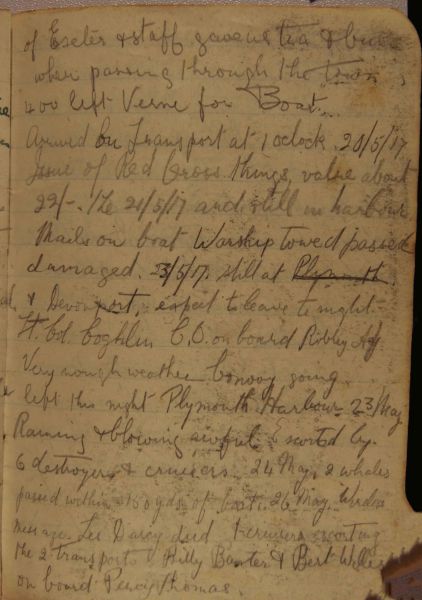 of Exeter & staff gave us tea & buns
when passing through the town
400 left Verne for Boat.
Arrived on Transport at 1 oclock 20/5/17
Issue of Red Cross things, value about
22/-. The 21/5/17 and still in harbour
Mails on boat Warship towed passed
damaged. 23/5/17 still at Plymouth
& Devonport, expect to leave to night.
Lt. Col. Coghlin C.O. on board
Very rough weather Convoy going
left this night Plymouth Harbour 23/May
Raining & blowing awful Escorted by
6 destroyers & cruisers. 24 May, 2 whales
passed within 150 yds of boat. 26 May
message Les Darcy died escorting
the 2 transports Hilly Baxter & Bert
on board Percy Thomas.